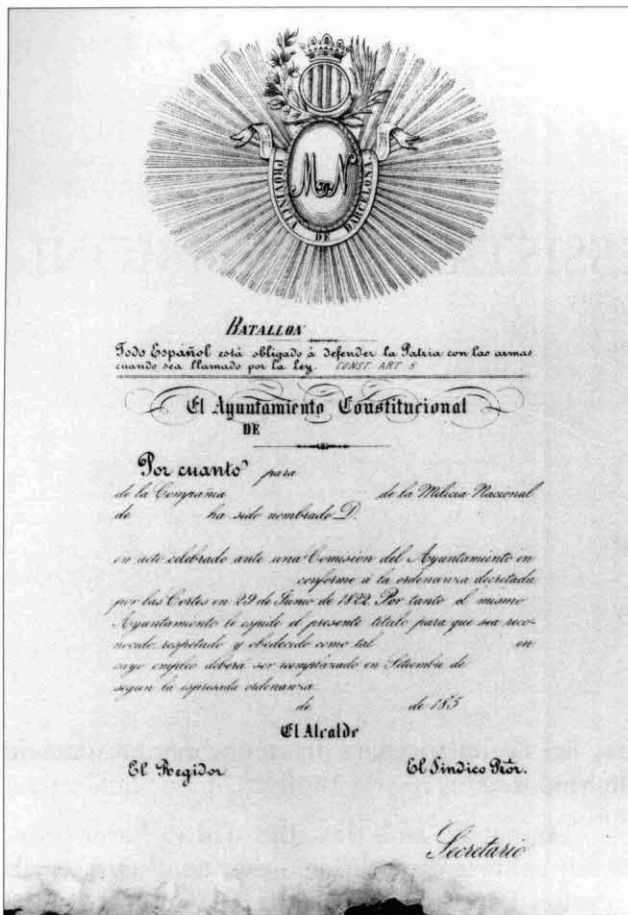 M N
PROVINCIA DE BARCELONA
BATALLON
Todo Español está obligado á defender la Patria con las armas
cuando sea llamado por la ley. CONST. ART 5
El Ayuntamiento Constitucional
DE
Por cuanto para
de la Compañia de la Milicia Nacional
de ha sido nombrado D.
en acto celebrado ante una Comision del Ayuntamiento en
conforme á la ordenanza decretada
por las Cortes en 29 de Junio de 1822. Por tanto el mismo
Ayuntamiento le espide el presente titulo para que sea reco-
nocido, respetado y obedecido como tal en
cuyo empleo deberá ser reemplazado en Setiembre de
segun la espresada ordenanza.
de de 185
El Alcalde
El Regidor. El Sindico Prór.
Secretario